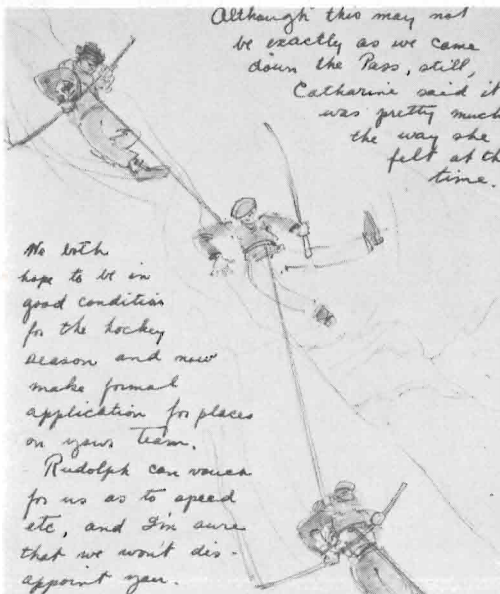 Although this may not
be exactly as we came
down the Pass, still,
Catharine said it
was pretty much
the way she
felt at th
time.
We both
hope to be in
good condition
for the hockey
season and now
make formal
application for places
on your team.
Rudolph can vouch
for us as to speed
etc, and I'm sure
that we won't dis-
appoint you.